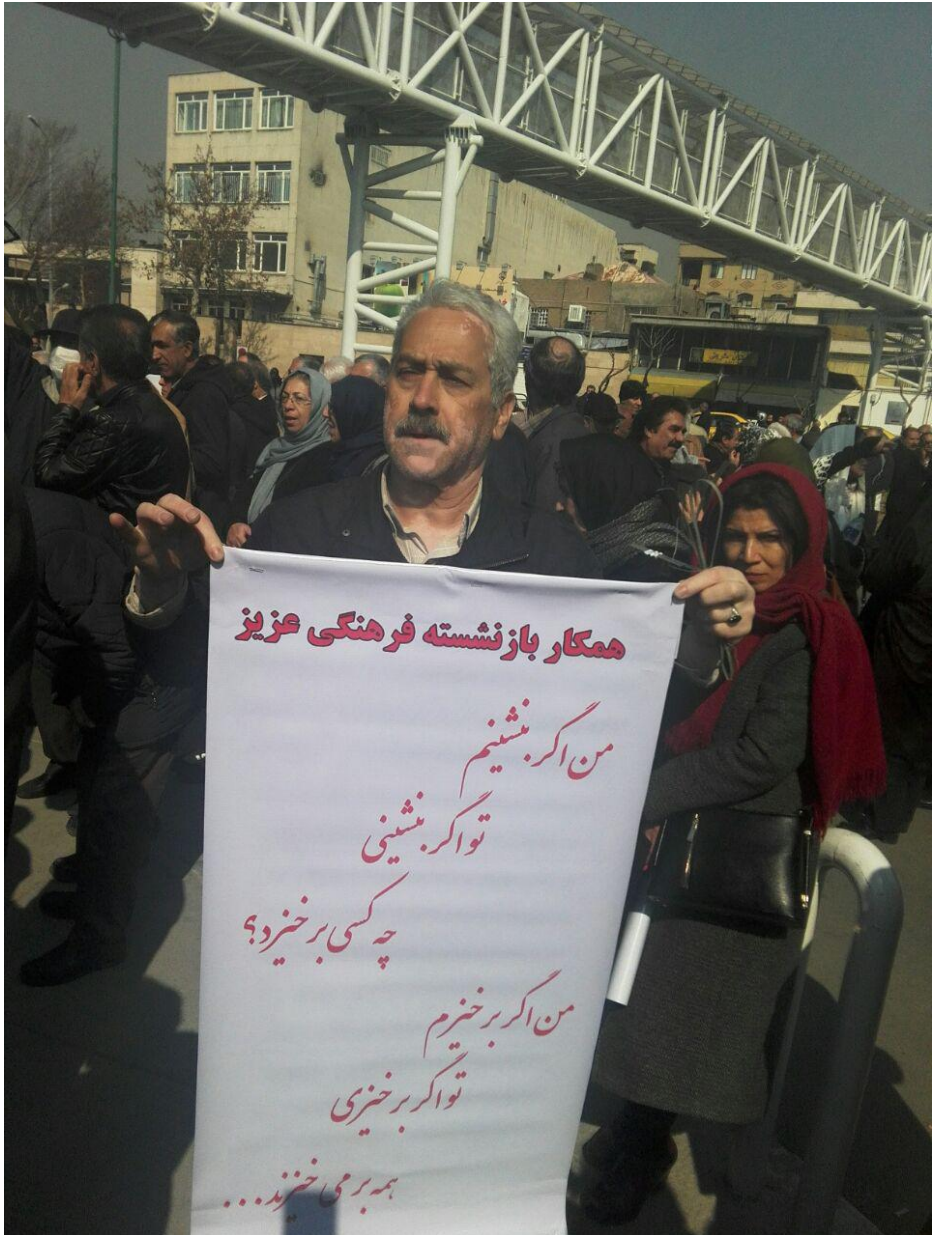 همکار بازنشسته فرهنگی عزیز
من اگر بنشینم
تو اگر بنشینی
چه کسی برخیزد؟
من اگر برخیزم
تو اگر برخیزی
همه برمی خیزند...